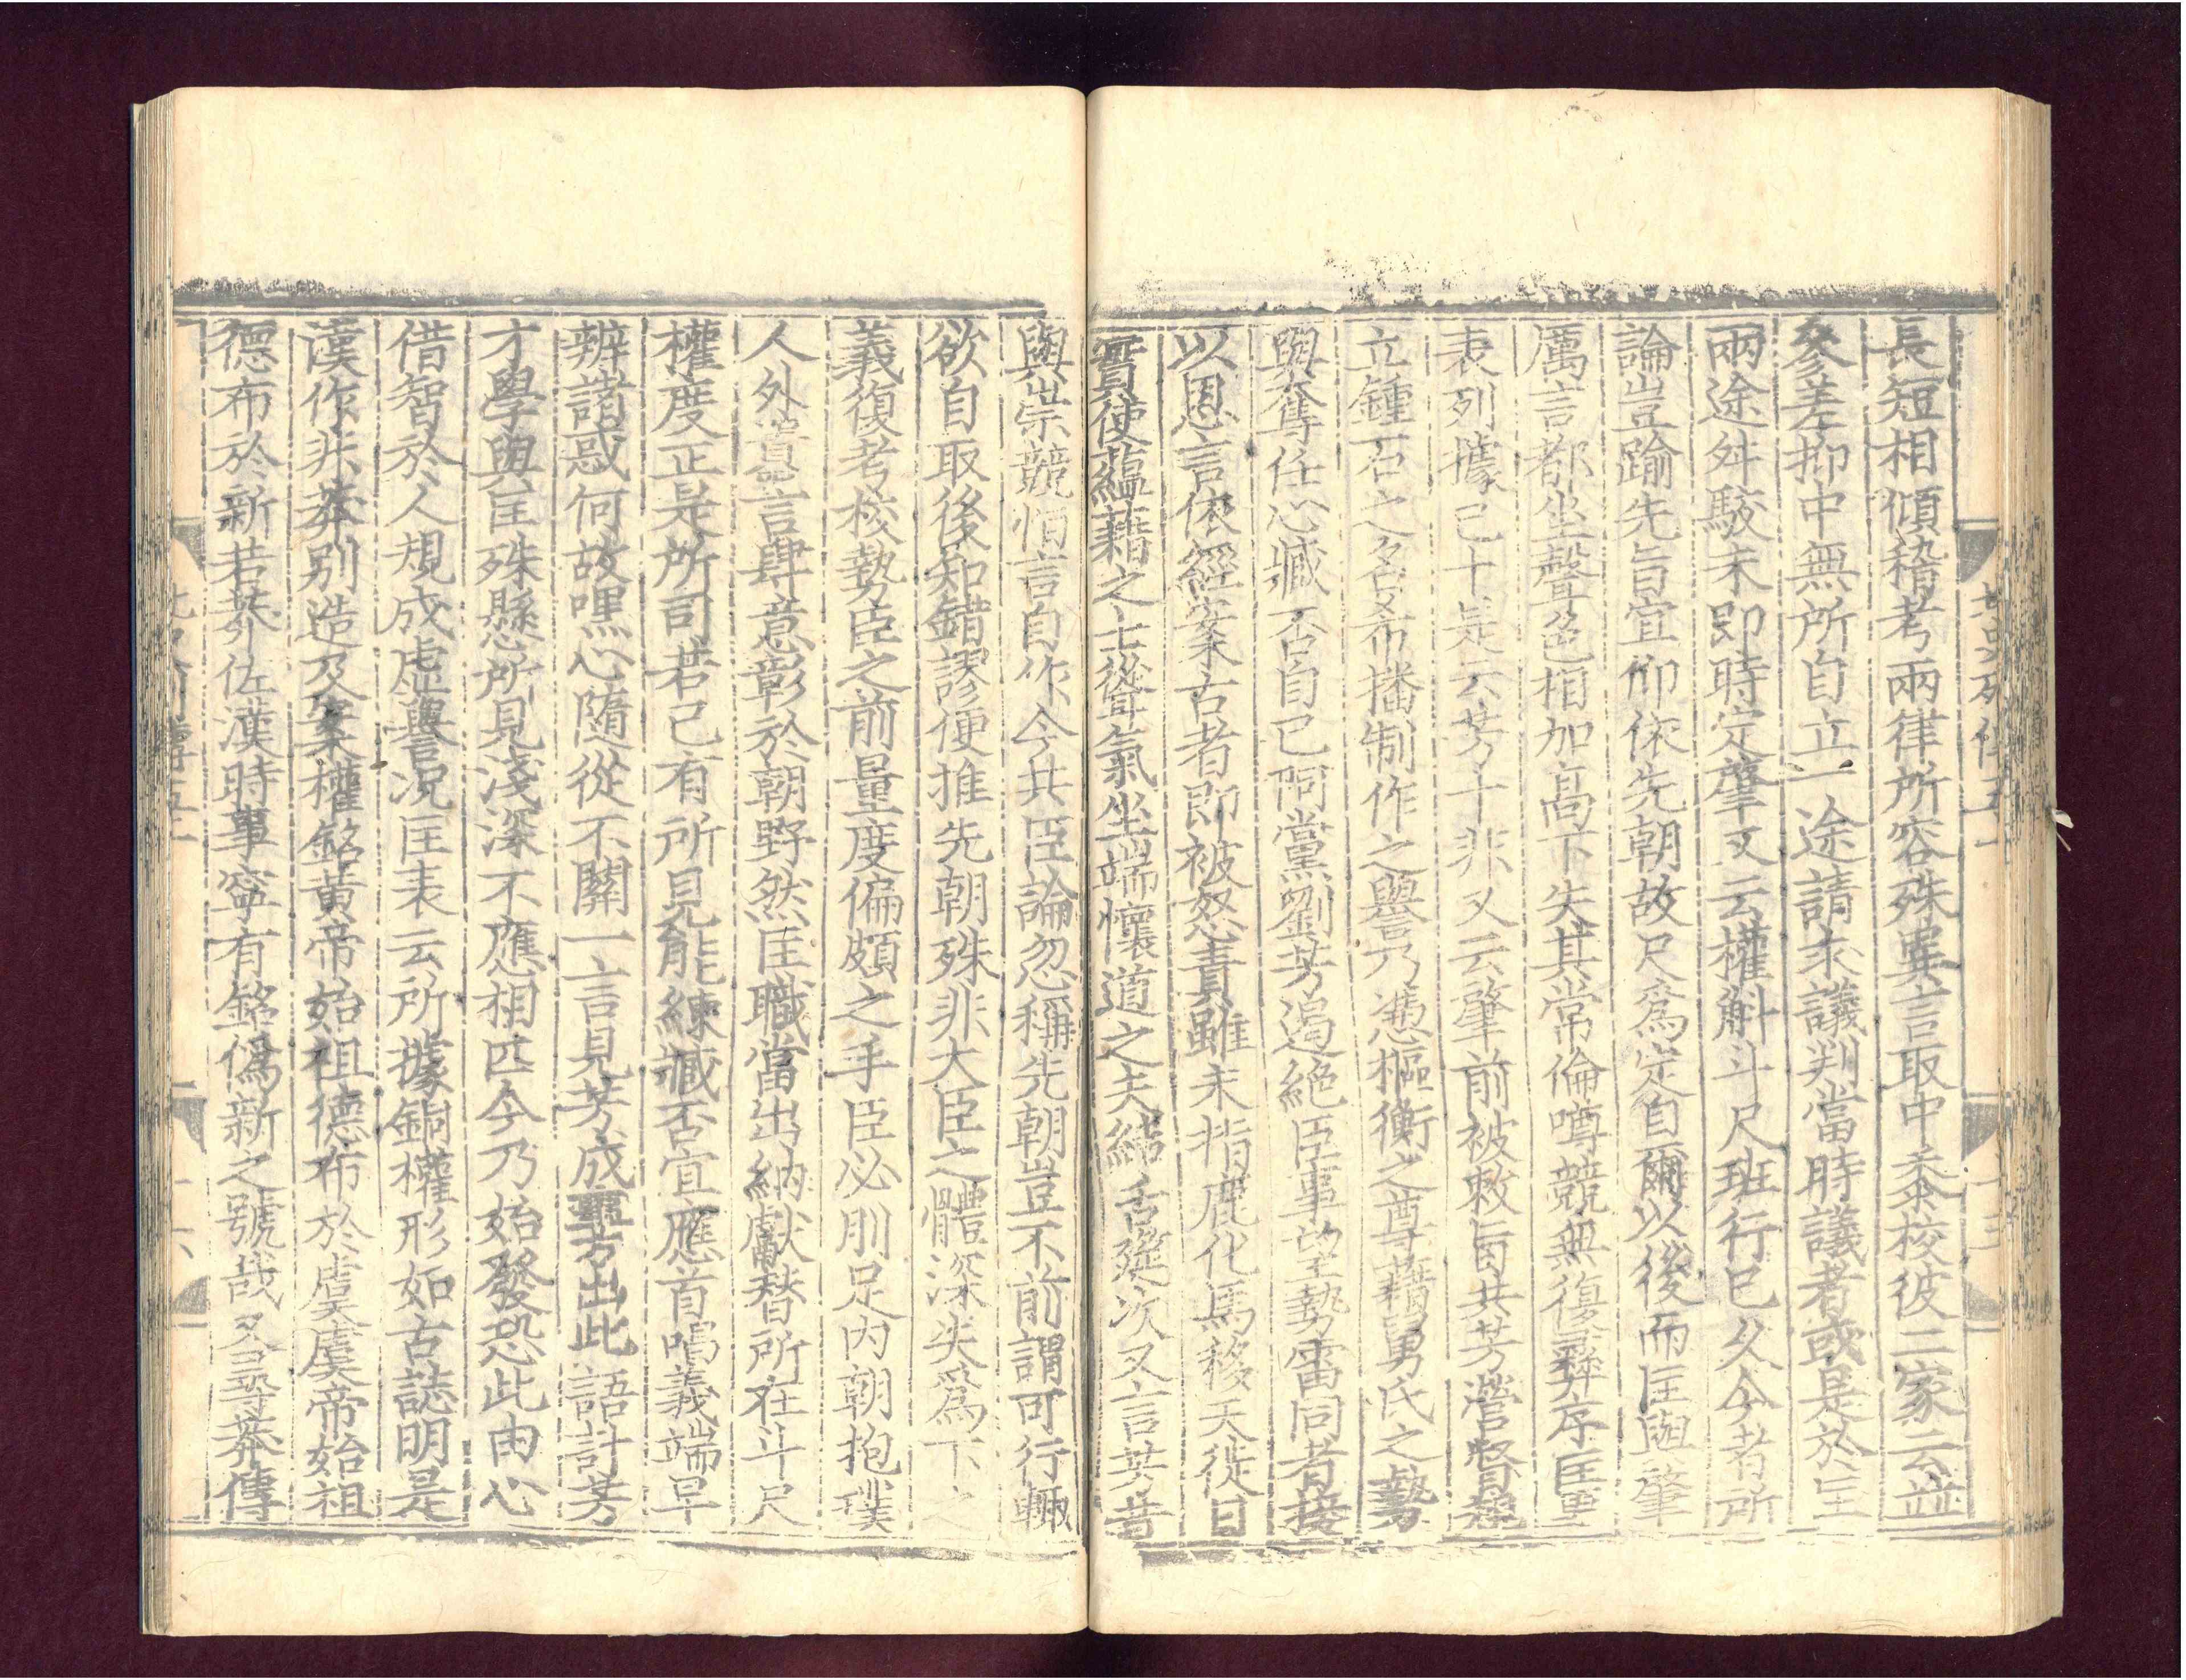 北史列傳五
長短相傾稽考兩律所容殊異言取中黍校彼二家云並
參差抑中無所自立一途請求議判當時議者或是於匡
兩途舛駮未即時定肇又云權斛斗尺班行已久今者所
論豈踰先旨宜仰依先朝故尺爲定自爾以後而匡與肇
厲言都坐聲色相加高下失其常倫噂競無復彝序匡更
表列據己十是云芳十非又云肇前被敕旨共芳營督規
立鍾石之名希播制作之譽乃憑樞衡之尊藉舅氏之勢
與奪任心臧否自己阿黨劉芳遏絕臣事望勢雷同者接
以恩言依經案古者即被怒責雖未指鹿化馬移天徙日
實使蘊藉之士聳氣坐端懷道之夫結舌筵次又言芳昔
與崇競恒言自作今共臣論忽稱先朝豈不前謂可行輒
欲自取後知錯謬便推先朝殊非大臣之體深失爲下之
義復考校勢臣之前量度偏頗之手臣必刖足內朝抱璞
人外囂言肆意彰於朝野然匡職當出納獻替所在斗尺
權度正是所司若己有所見能練臧否宜應首唱義端早
辨諸惑何故嘿心隨從不關一言見芳成事方出此語計芳
才學與匡殊懸所見淺深不應相匹今乃始發恐此由心
借智於人規成虛譽況匡表云所據銅權形如古誌明是
漢作非莽別造及案權銘黃帝始祖德布於虞虞帝始祖
德布於新若莽佐漢時事寧有銘僞新之號哉又尋莽傳